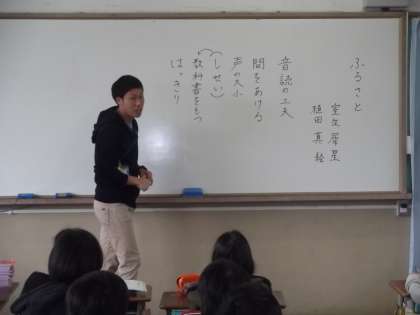 ふるさと
室生犀星
植田真絵
音読の工夫
間をあける
声の大小
(しせい)
教科書をもつ
はっきり